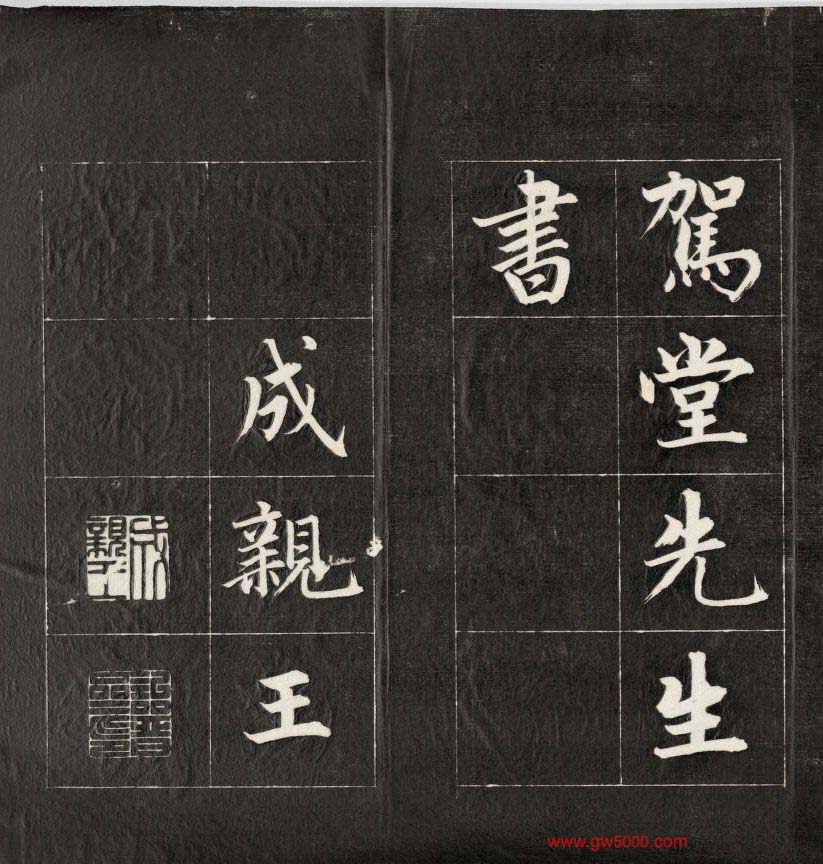 駕堂先生
書
成親王
www.gw5000.com